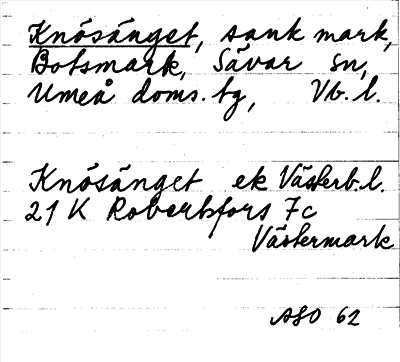 Knösänget, sank mark,
Botsmark, Sävar sn,
Umeå doms. tg, Vb. l.
Knösänget ek Västerb. l.
21 K Robertsfors 7c
Västermark
ASO 62